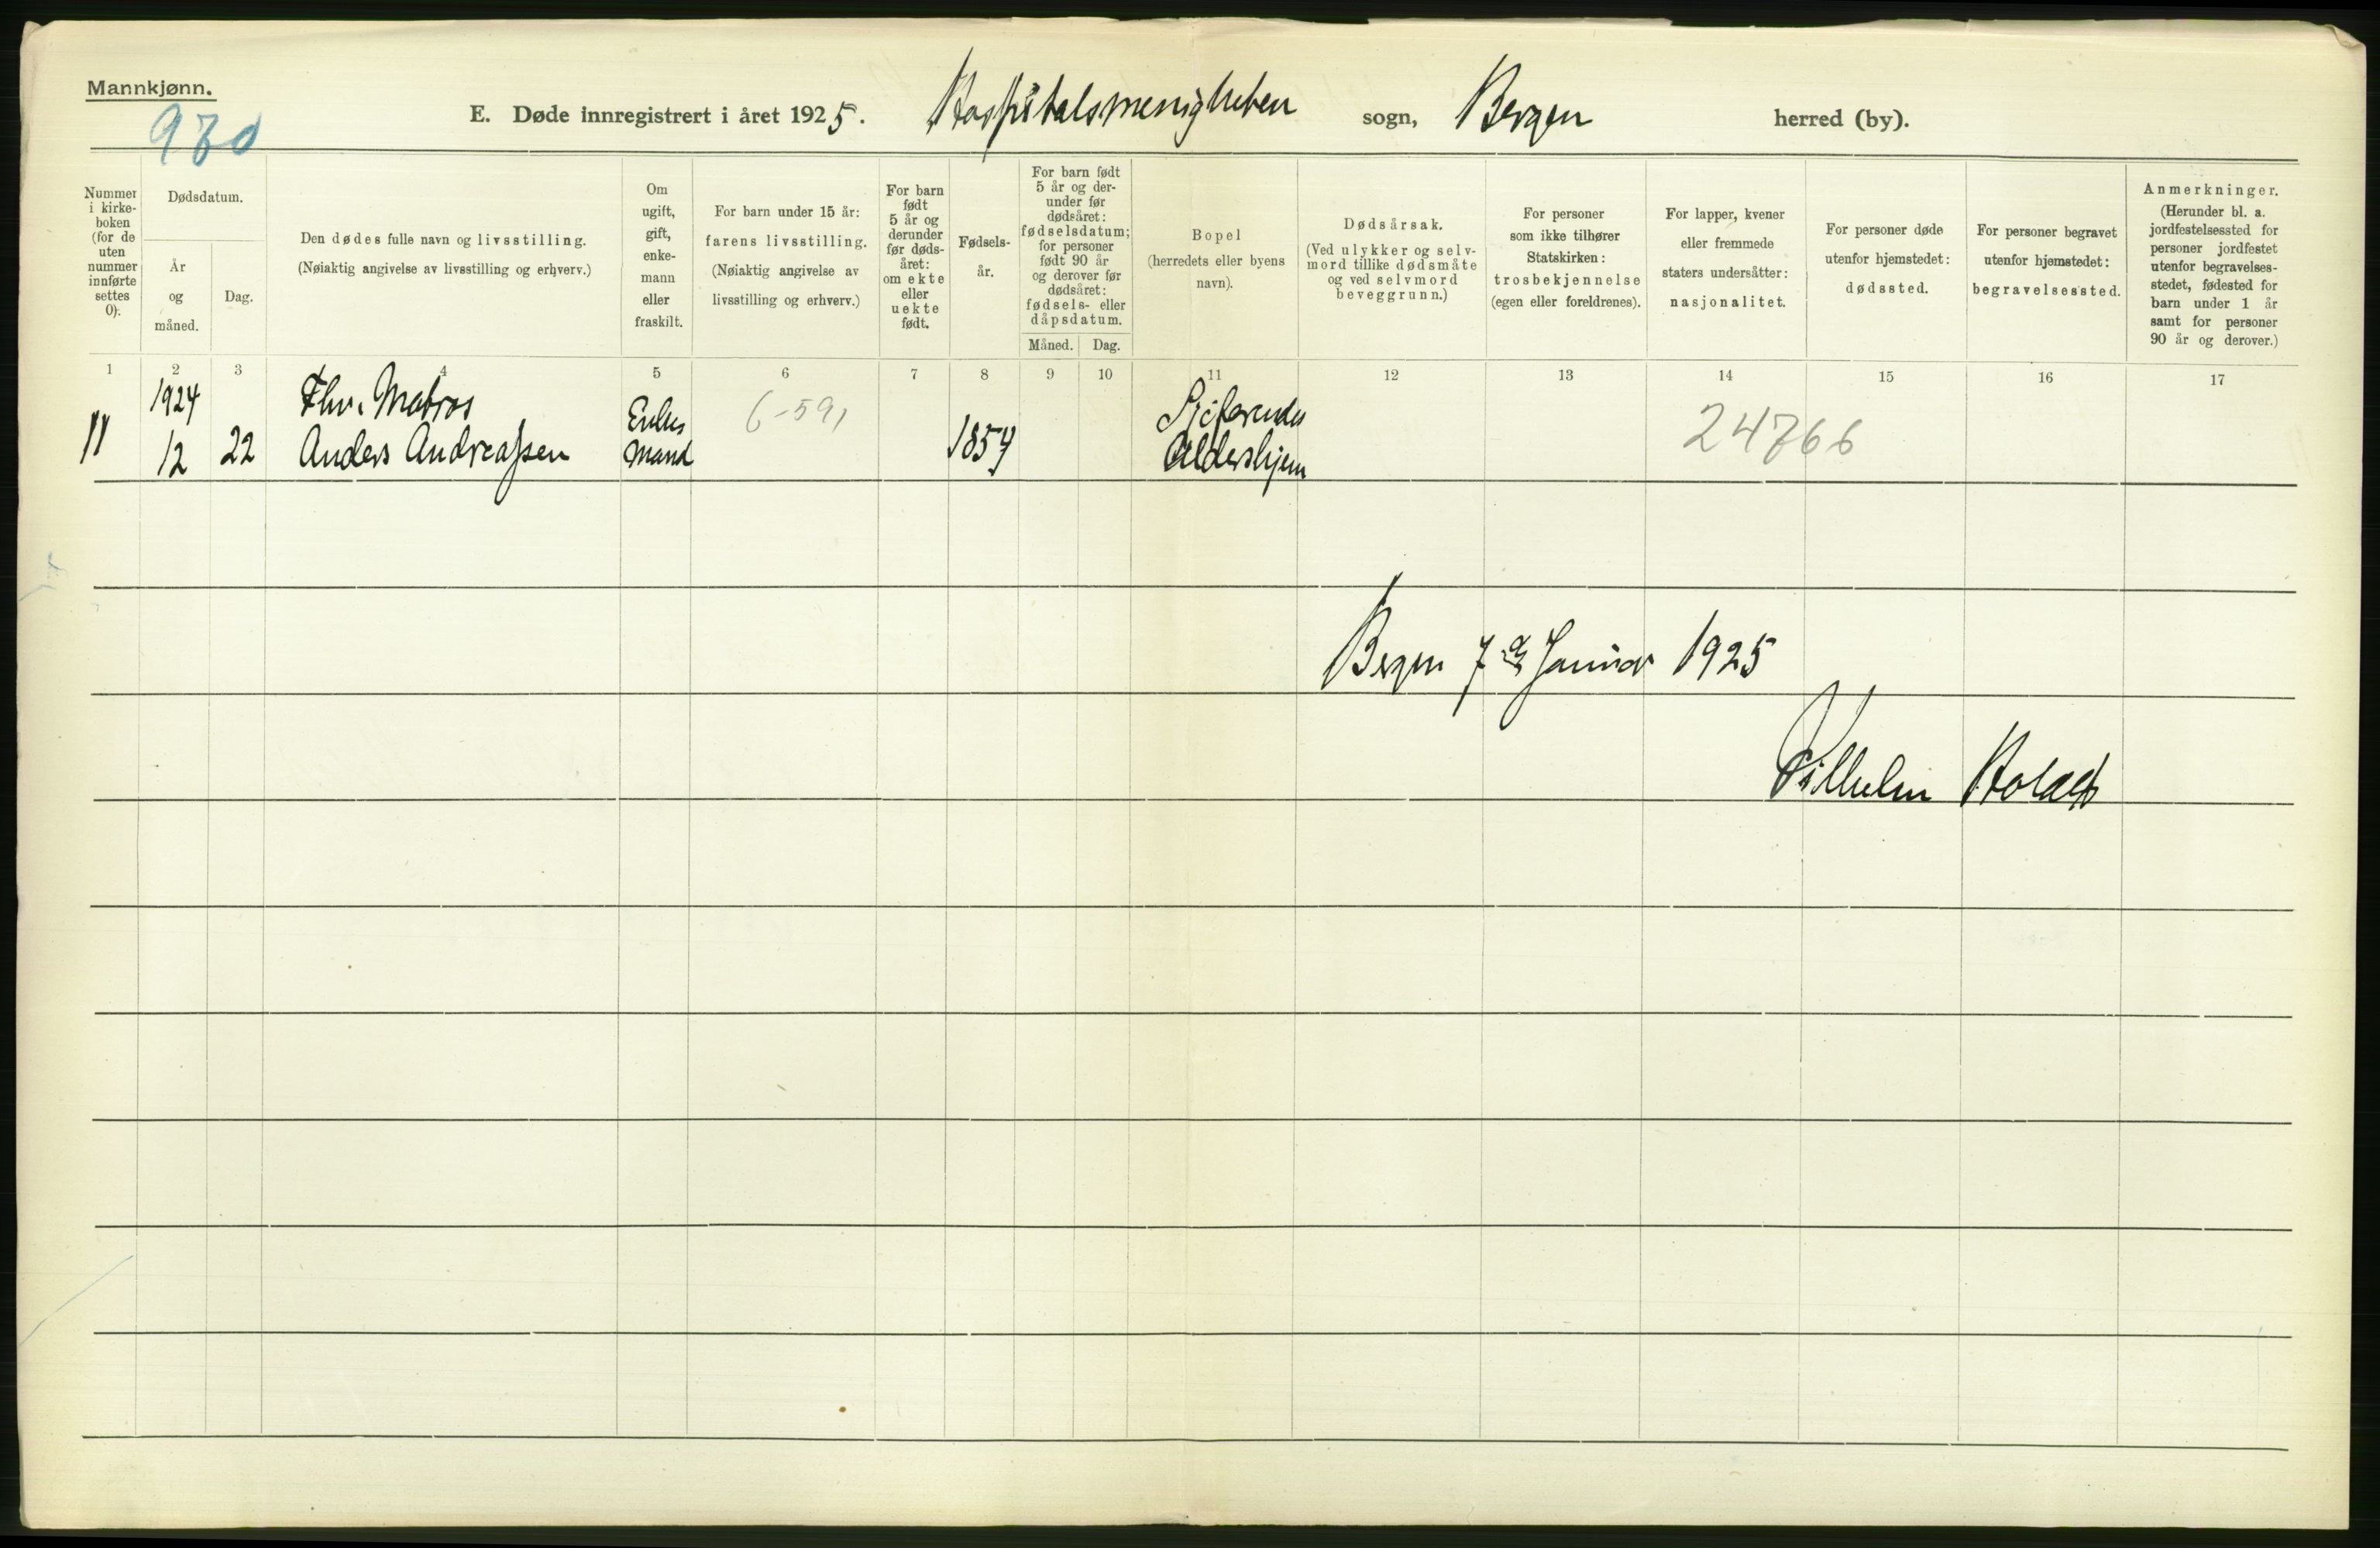 Mannkjønn.
970
E. Døde innregistrert i året 1925. Hospitalsmenigheten sogn, Bergen herred (by).
Nummer
i kirke-
boken
(for de
uten
nummer
innførte
settes
0).
Dødsdatum.
År
og
måned.
Dag.
Den dødes fulle navn og livsstilling.
(Nøiaktig angivelse av livsstilling og erhverv.)
Om
ugift,
gift,
enke-
mann
eller
fraskilt.
For barn under 15 år:
farens livsstilling.
(Nøiaktig angivelse av
livsstilling og erhverv.)
For barn
født
5 år og
derunder
før døds-
året:
om ekte
eller
uekte
født.
Fødsels-
år.
For barn født
5 år og der-
under før
dødsåret:
fødselsdatum;
for personer
født 90 år
og derover før
dødsåret:
fødsels- eller
dåpsdatum.
Måned. Dag.
Bopel
(herredets eller byens
navn).
Dødsårsak.
(Ved ulykker og selv-
mord tillike dødsmåte
og ved selvmord
beveggrunn.)
For personer
som ikke tilhører
Statskirken:
trosbekjennelse
(egen eller foreldrenes).
For lapper, kvener
eller fremmede
staters undersåtter:
nasjonalitet.
For personer døde
utenfor hjemstedet:
dødssted.
For personer begravet
utenfor hjemstedet:
begravelsessted.
Anmerkninger.
(Herunder bl. a.
jordfestelsessted for
personer jordfestet
utenfor begravelses-
stedet, fødested for
barn under 1 år
samt for personer
90 år og derover.)
1 2 3 4 5 6 7 8 9 10 11 12 13 14 15 16 17
11
1924
12
22
Fhv. Matros
Anders Andreassen
Enkes
mand
6-591
1857
Sjøfarendes
Aldershjem
24766
Bergen 7de Januar 1925
Vilhelm